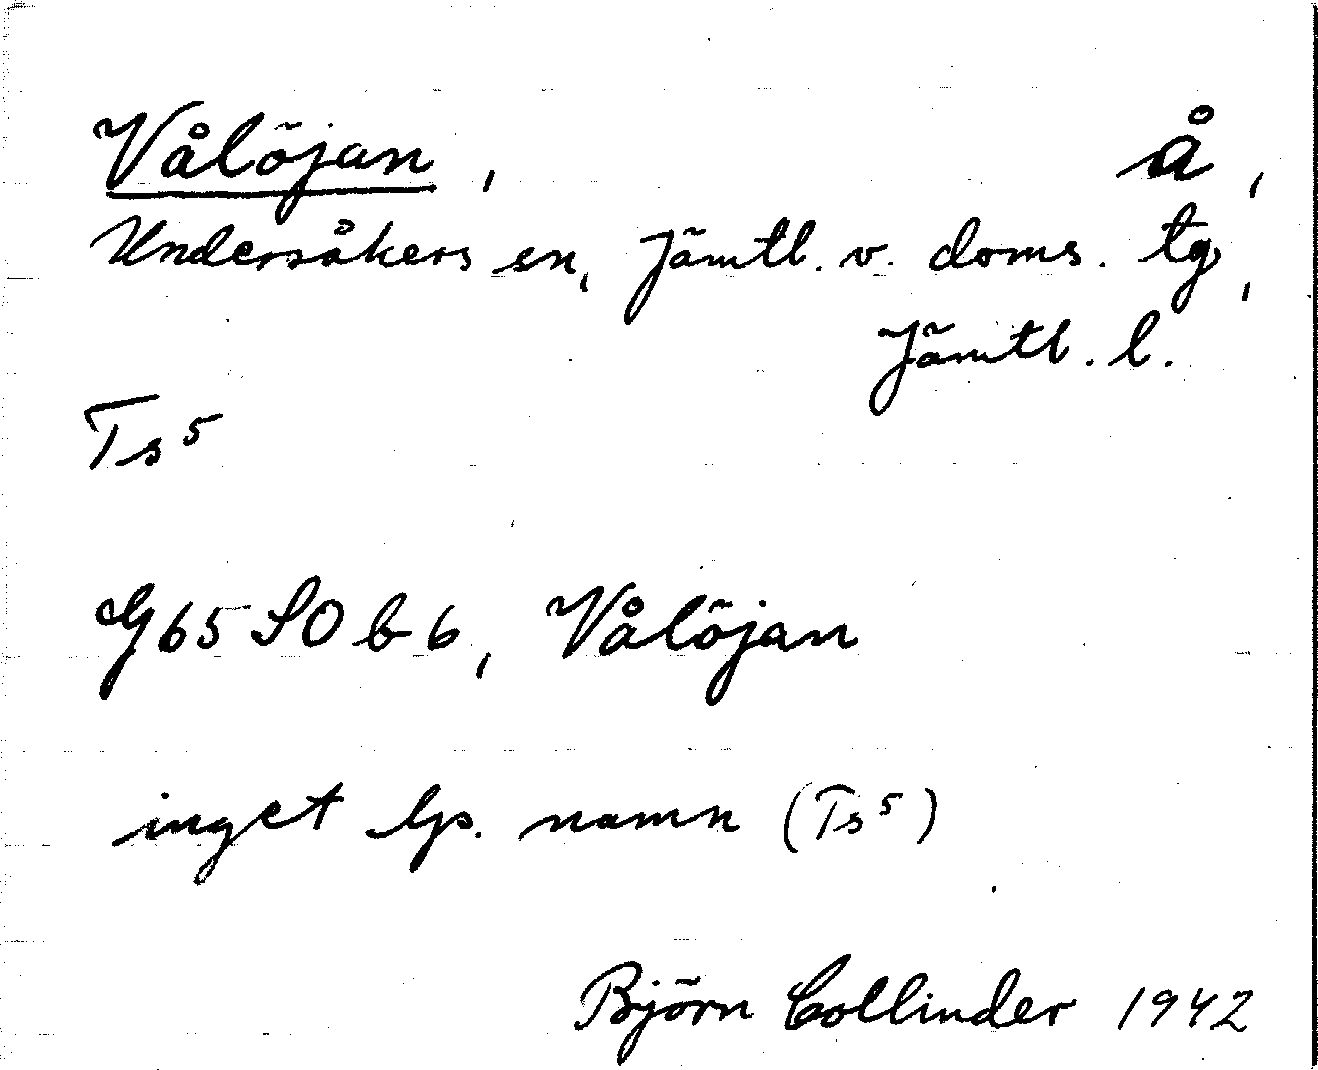 Vålöjan, å,
Undersåkers sn, Jämtl. v. doms. tg,
Jämtl. l.
Ts⁵
G65SOb6, Vålöjan
inget lp. namn (Ts⁵)
Björn Collinder 1942